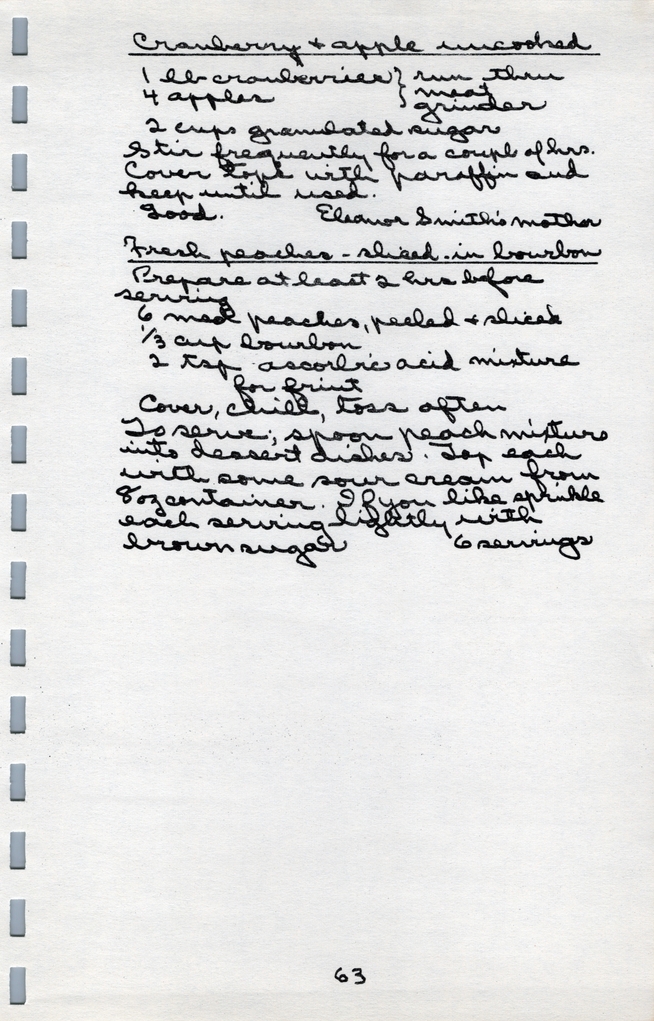 Cranberry + apple uncooked
1 lb cranberries } run thru
4 apples } meat
grinder
2 cups granulated sugar
Stir frequently for a coupl of hrs.
Cover tops with paraffin and
keep until used.
Good. Eleanor Smith's mother
Fresh peaches - sliced in bourbon
Prepare at least 2 hrs before
serving
6 med peaches, peeled + sliced
1/3 cup bourbon
2 tsp ascorbic acid mixture
for fruit
Cover, chill, toss often
To serve; spoon peach mixture
into dessert dishes. Top each
with some sour cream from
8 oz container. If you like sprinkle
each serving lightly with
brown sugar 6 servings
63